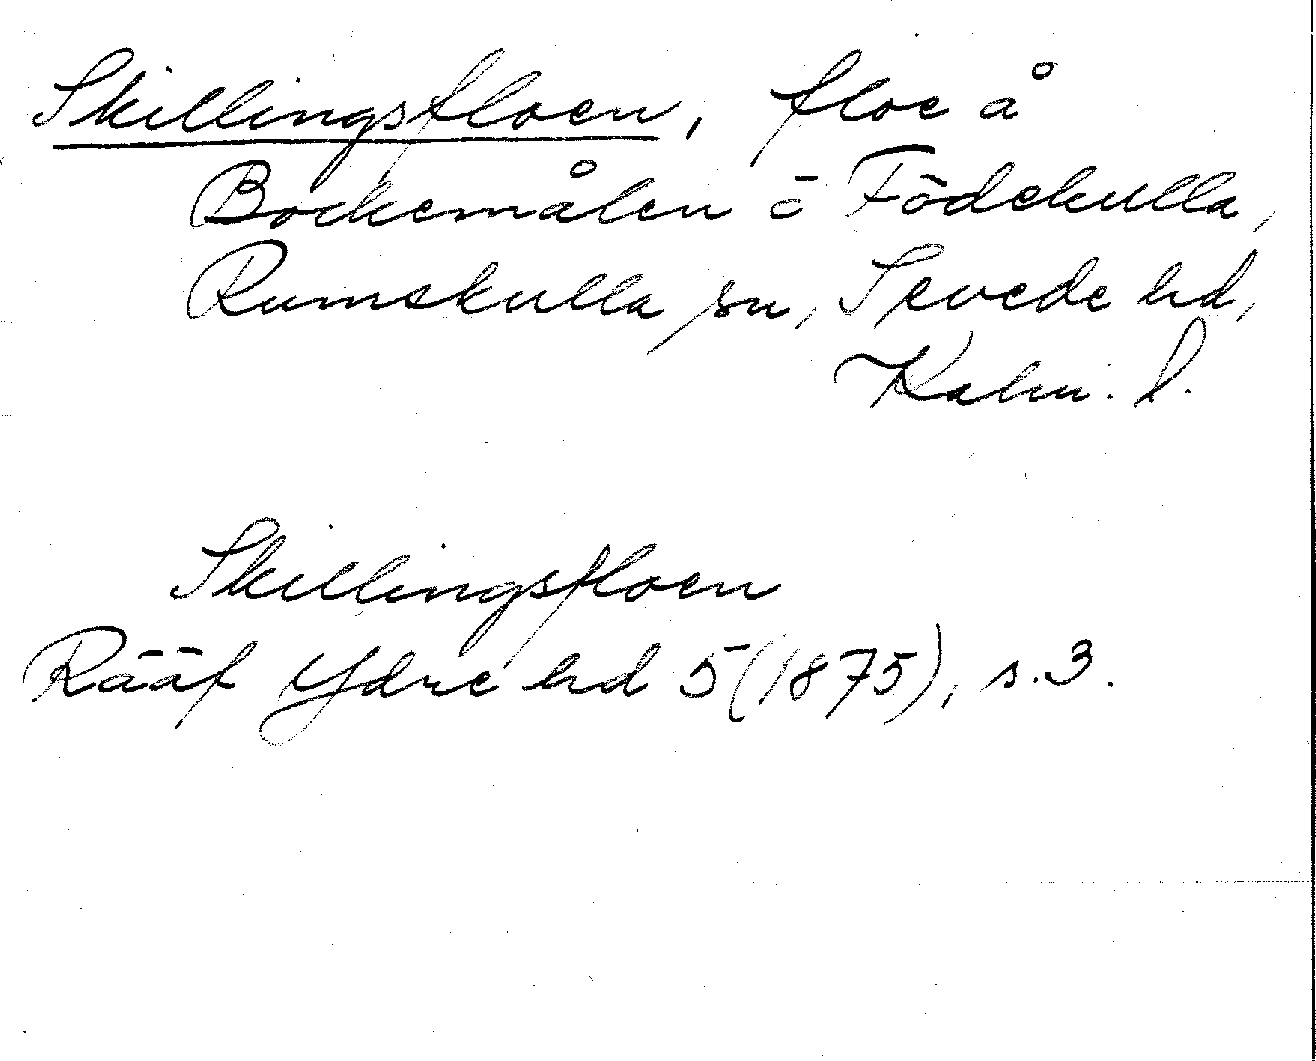 Skillingsfloen, floe å
Bockemålen ö Födekulla,
Rumskulla sn, Sevede hd,
Kalm. l.
Skillingsfloen
Rääf Ydre hd 5 (1875), s. 3.